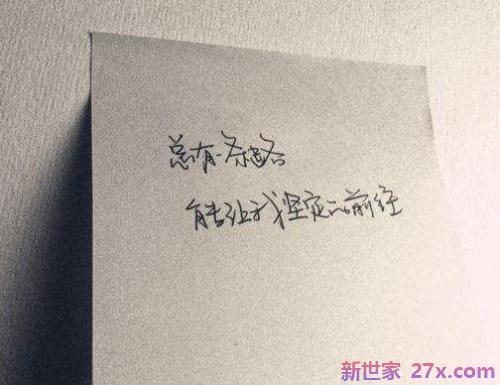 总有一条路
能让我坚定的前往
新世家 27x.com